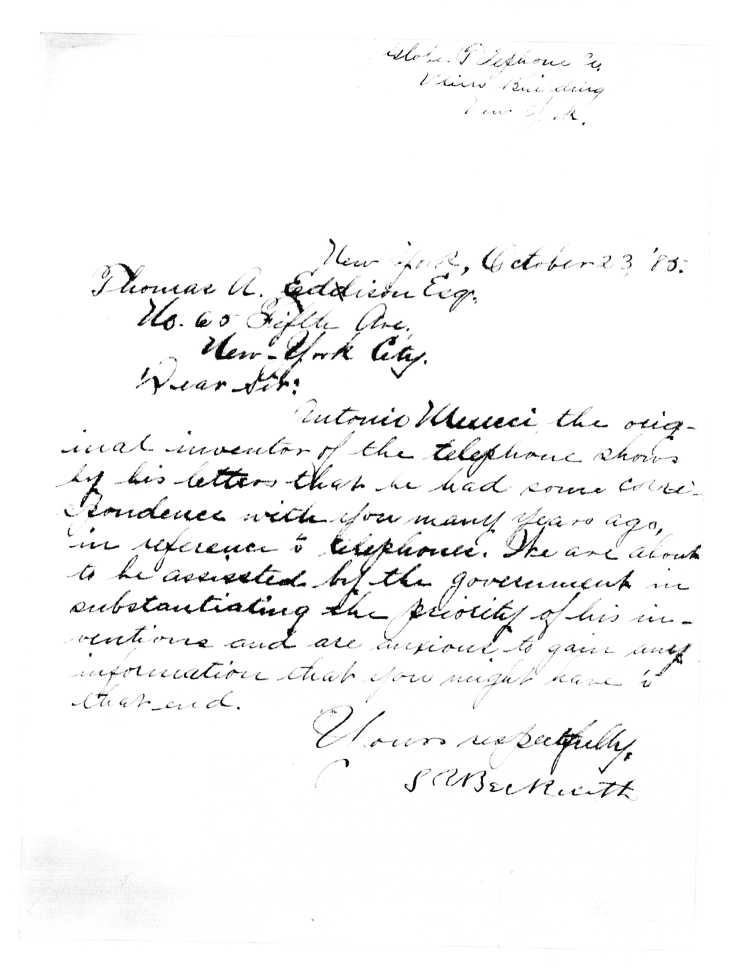 Globe Telephone Co.
Building
New York.
New York, October 23, '85.
Thomas A. Eddison Esq.
No. 65 Fifth Ave.
New-York City.
Dear Sir:
Antonio Meucci, the orig-
inal inventor of the telephone shows
by his letters that he had some corre-
spondence with you many years ago,
in reference to telephones. We are about
to be assissted by the government in
substantiating the priority of his in-
ventions and are anxious to gain any
information that you might have to
that end.
Yours respectfully,
S R Beckwith